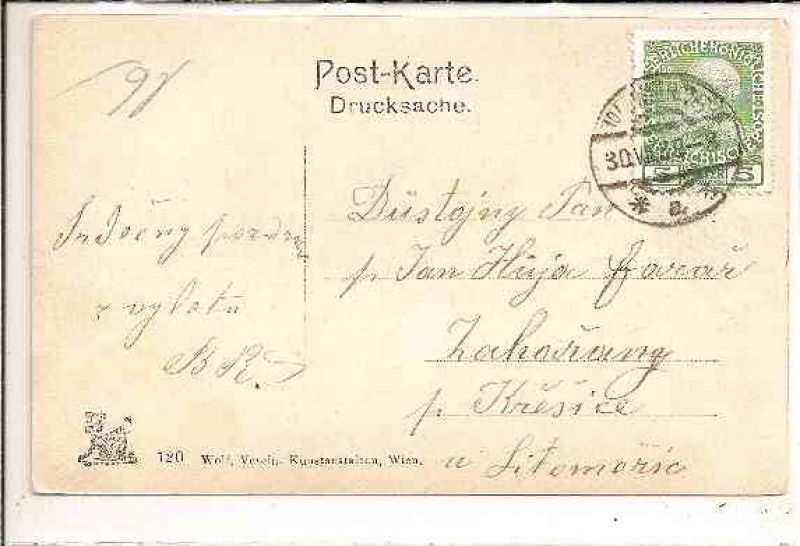 Post-Karte.
Drucksache.
5 5
30.VI
* a
Srdečný pozdrav
z výletu
BR.
Důstojný Pan
p. Jan Hüja farář
Zahořany
p. Křešice
u Litoměřic
120 Wolf, Verein. Kunstanstalten, Wien.